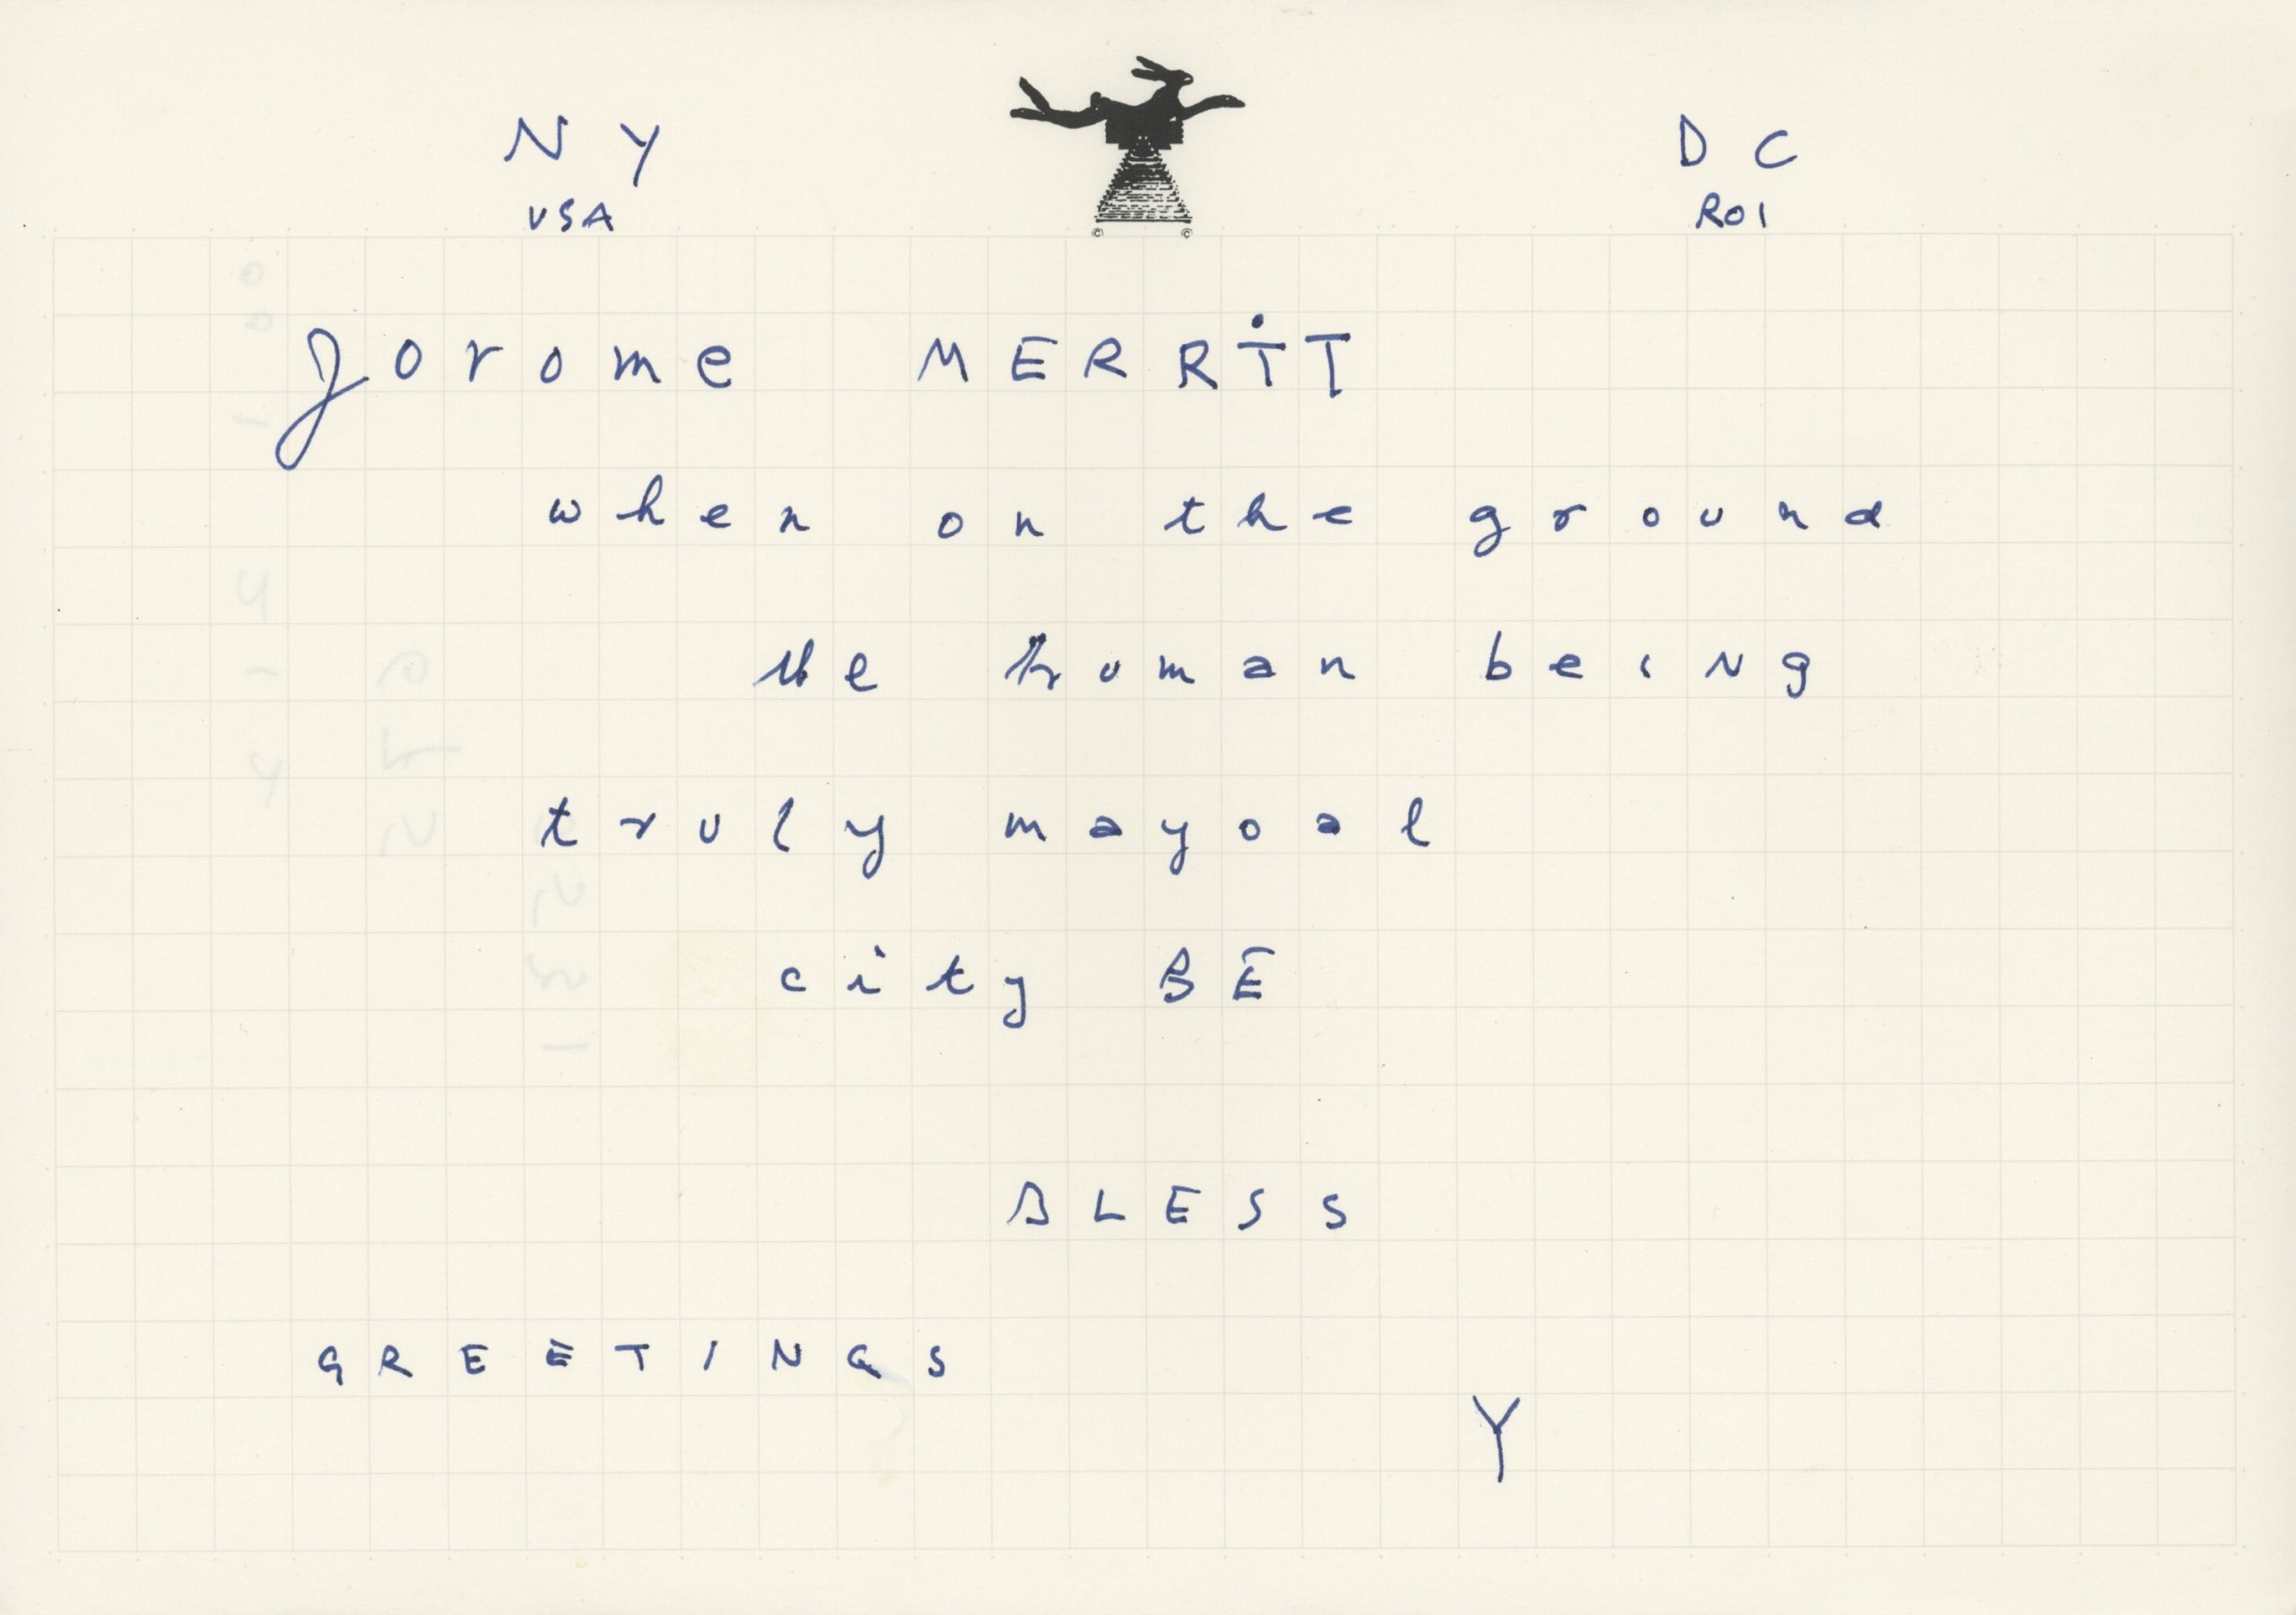 NY DC
USA ROI
Jorome MERRiTT
when on the ground
the human being
truly mayoal
city BE
BLESS
GREETINGS
Y